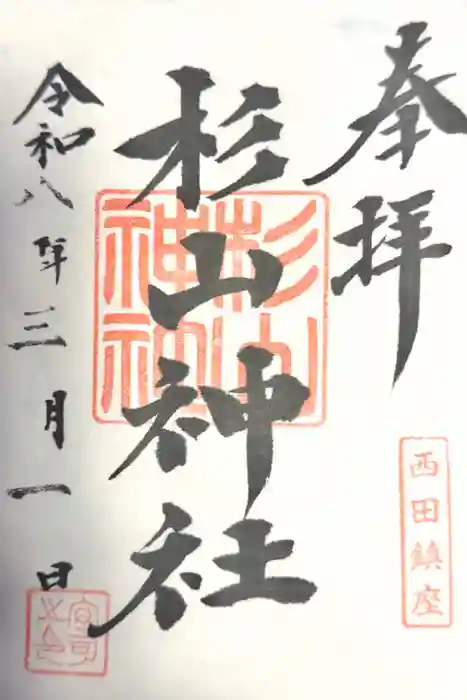 奉拝
西田鎮座
杉山神社
杉山神社
令和八年三月一日
宮司之印